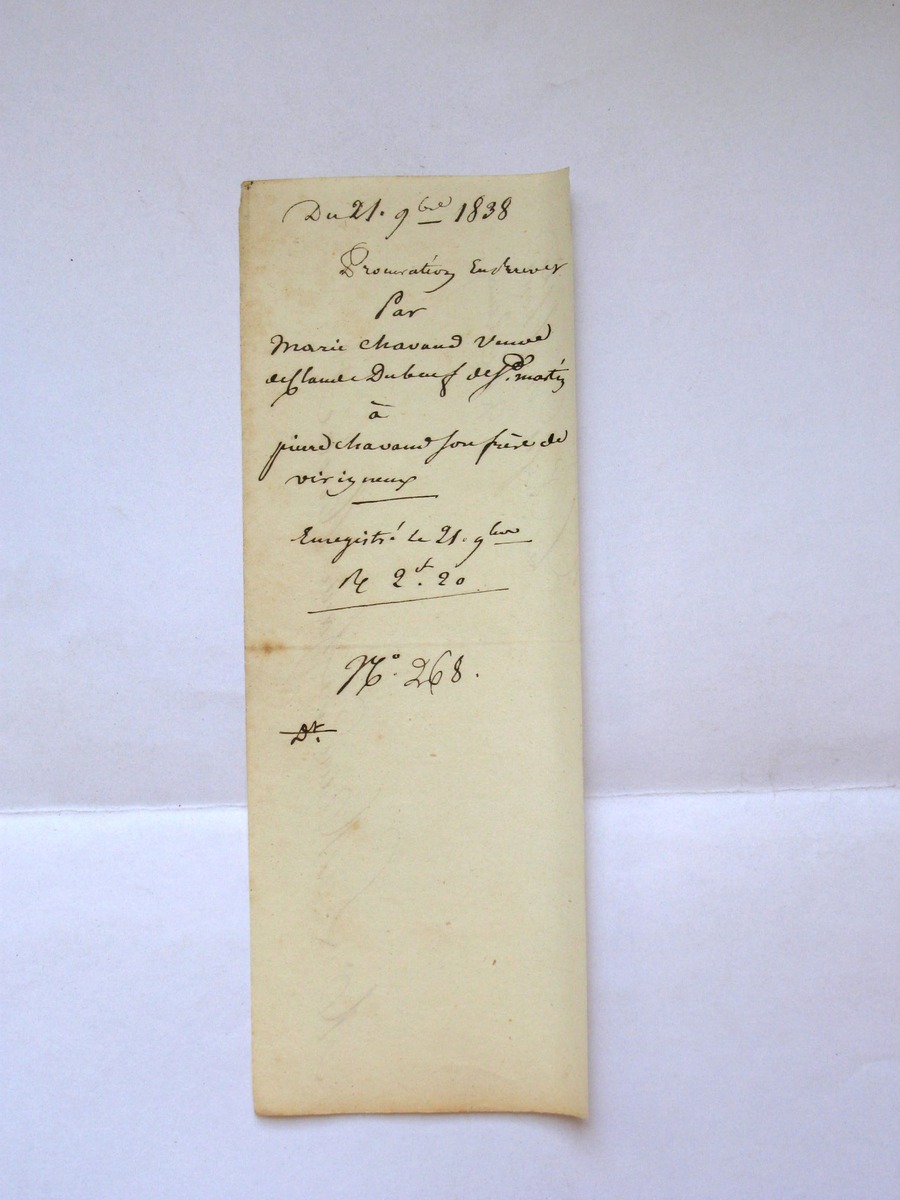 Du 21. 9bre 1838
Procuration En brevet
Par
Marie Chavand Veuve
de Claude Duboeuf de St. martin
à
pierre Chavand son frère de
virigneux
Enregistré le 21. 9bre
R 2f. 20
No. 268.
Dt.